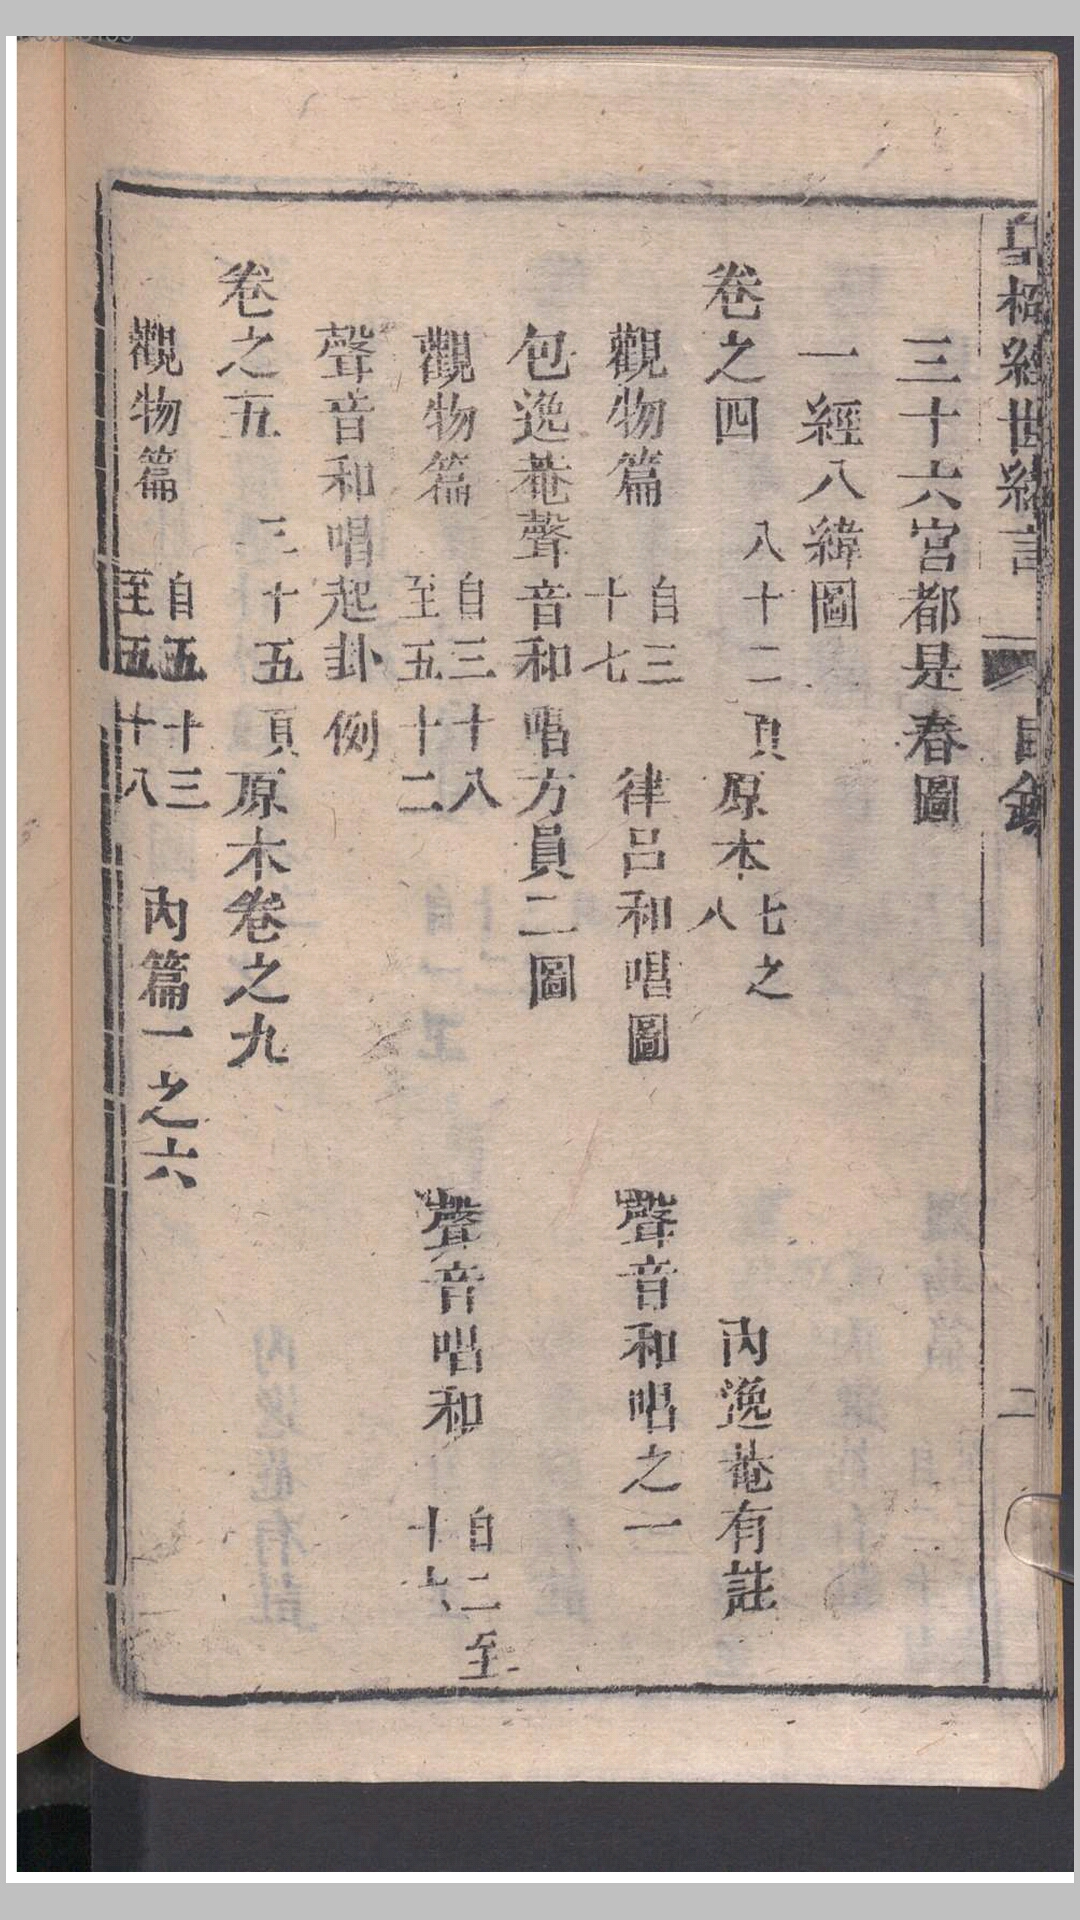 皇極經世緒言 目錄 二
三十六宮都是春圖
一經八緯圖
卷之四 八十二頁原本七之八 內逸菴有註
觀物篇 自三十七 律呂和唱圖 聲音和唱之一
包逸菴聲音和唱方員二圖
觀物篇 自三十八至五十二 聲音唱和 自二至十六
聲音和唱起卦例
卷之五 三十五頁原本卷之九
觀物篇 自五十三至五十八 內篇一之六